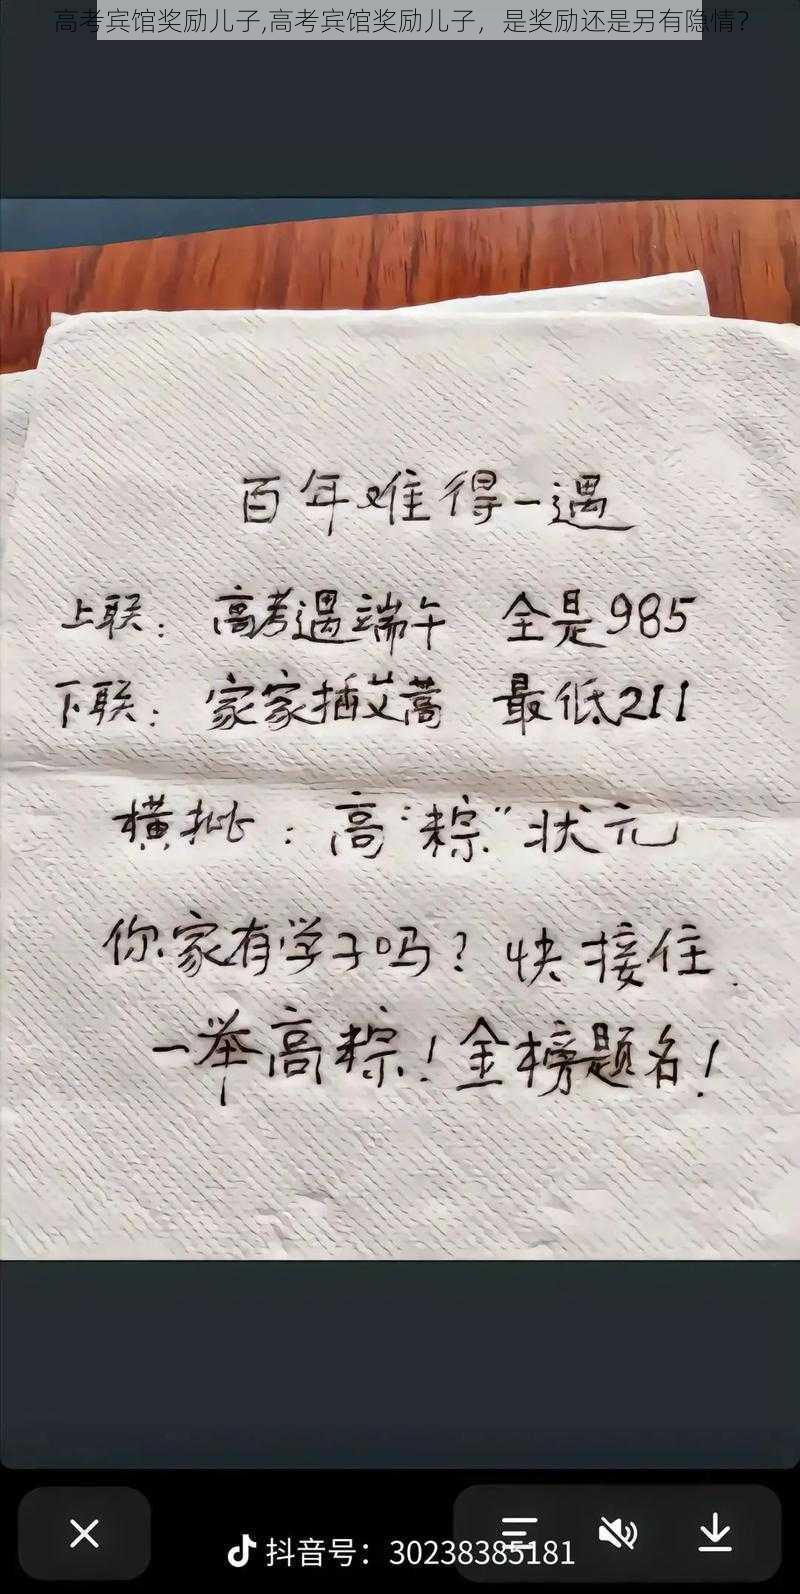 高考宾馆奖励儿子,高考宾馆奖励儿子，是奖励还是另有隐情？
百年难得一遇
上联：高考遇端午 全是985
下联：家家插艾蒿 最低211
横批：高“粽”状元
你家有学子吗？快接住.
一举高粽！金榜题名！
抖音号：30238385181